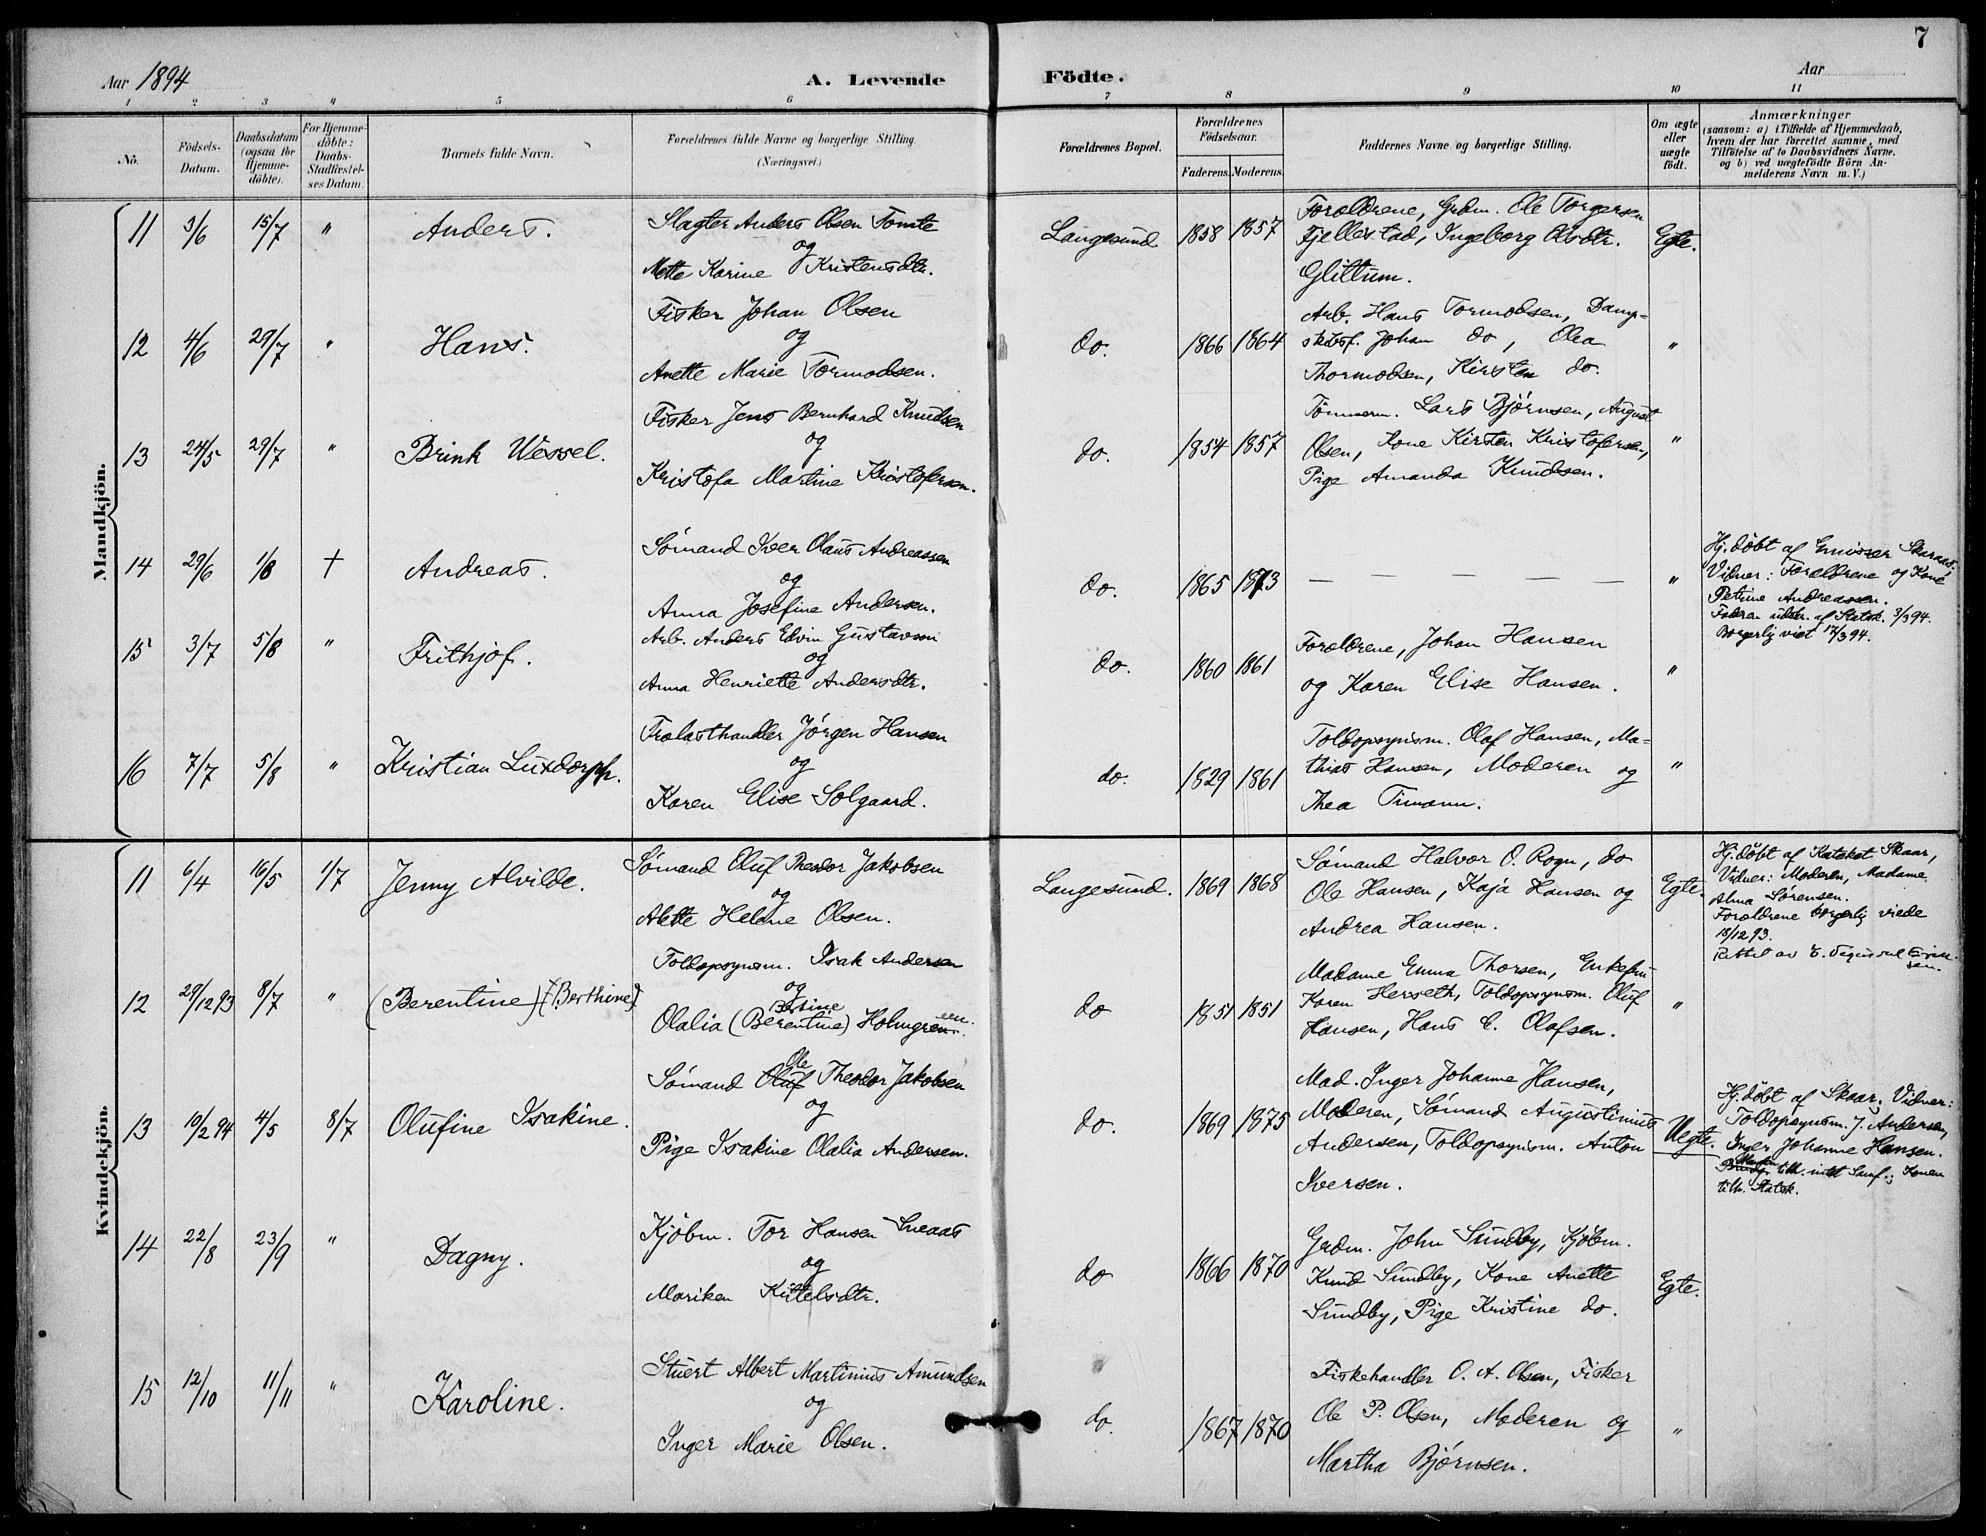 7
Aar 1894
A. Levende Födte.
Aar
1 2 3 4 5 6 7 8 9 10 11
No.
Födsels-
Datum.
Daabsdatum
(ogsaa for
Hjemme-
döbte).
For Hjemme-
döbte:
Daabs-
Stadfæstel-
ses Datum.
Barnets fulde Navn.
Forældrenes fulde Navne og borgerlige Stilling.
(Næringsvei.)
Forældrenes Bopæl.
Forældrenes
Födselsaar.
Faderens. Moderens.
Faddernes Navne og borgerlige Stilling.
Om ægte
eller
uægte
födt.
Anmærkninger
(saasom: a) i Tilfælde af Hjemmedaab,
hvem der har forrettet samme, med
Tilföielse af to Daabsvidners Navne,
og b) ved uægtefödte Börn An-
melderens Navn m. V.)
Mandkjön.
11 3/6 15/7 " Anders.
Slagter Anders Olsen Tomte
og
Mette Karine Kristensdtr.
Langesund 1858 1857
Forældrene, Grdm. Ole Torgersen
Fjellestad, Ingeborg Olsdtr.
Glittum.
Egte.
12 4/6 29/7 " Hans.
Fisker Johan Olsen
og
Anette Marie Tormodsen.
do. 1866 1864
Arb. Hans Tormodsen, Damp-
skibsf. Johan do, Olea
Thormodsen, Kirsten do.
"
13 24/5 29/7 " Brink Wessel.
Fisker Jens Bernhard Knudsen
og
Kristofa Martine Kristofersen.
do. 1854 1857
Tömmerm. Lars Bjørnsen, August
Olsen, Kone Kirsten Kristofersen,
Pige Amanda Knudsen.
"
14 29/6 1/8 † Andreas.
Sømand Iver Olaus Andreassen
og
Anna Josefine Andersen.
do. 1865 1873
— — — — — —
"
Hj. døbt af Emisser Skaraas.
Vidner: Forældrene og Kone
Petrine Andreassen.
Faderen udtr. af Statsk. 3/3 94.
Borgerlig viet 17/3 94.
15 3/7 5/8 " Frithjof.
Arb. Anders Edvin Gustavson
og
Anna Henriette Andersdtr.
do. 1860 1861
Forældrene, Johan Hansen
og Karen Elise Hansen.
"
16 7/7 5/8 " Kristian Luxdorph.
Trælasthandler Jørgen Hansen
og
Karen Elise Solgaard.
do. 1829 1861
Toldopsynsm. Olaf Hansen, Ma-
thias Hansen, Moderen og
Thea Timann.
"
Kvindekjön.
11 6/4 16/5 1/7 Jenny Alvilde.
Sømand Oluf Theodor Jakobsen
og
Alette Helene Olsen.
Langesund. 1869 1868
Sømand Halvor O. Rogn, do
Ole Hansen, Kaja Hansen og
Andrea Hansen.
Egte.
Hj. døbt af Kateket Skaar,
Vidner: Moderen, Madame
Alma Sørensen.
Forældrene borgerlig viede
18/12 93.
Rettet av
12 29/12 93 8/7 " (Berentine) [Berthine]
Toldopsynsm. Isak Andersen
og
Bertine
Olalia (Berentine) Holmgreen.
do 1851 1851
Madame Emma Thorsen, Enkefru
Karen Herseth, Toldopsynsm. Oluf
Hansen, Hans E. Olafsen.
"
13 10/2 94 4/5 8/7 Olufine Isakine.
Ole
Sømand Oluf Theodor Jakobsen
og
Pige Isakine Olalia Andersen.
do. 1869 1875
Mad. Inger Johanne Hansen,
Moderen, Sømand Augustinius
Andersen, Toldopsynsm. Anton
Iversen.
Uegte.
Hj. døbt af Skaar. Vidner:
Toldopsynsm. J. Andersen,
Inger Johanne Hansen.
tilh. intet Samf.; Konen
tilh. Statsk.
14 22/8 23/9 " Dagny.
Kjøbm. Tor Hansen Sneaas
og
Mariken Kittelsdtr.
do 1866 1870
Grdm. John Sundby, Kjøbm.
Knud Sundby, Kone Anette
Sundby, Pige Kristine do.
Egte.
15 12/10 11/11 " Karoline.
Stuert Albert Martinius Amundsen
og
Inger Marie Olsen.
do. 1867 1870
Fiskehandler O. A. Olsen, Fisker
Ole P. Olsen, Moderen og
Martha Bjørnsen.
"